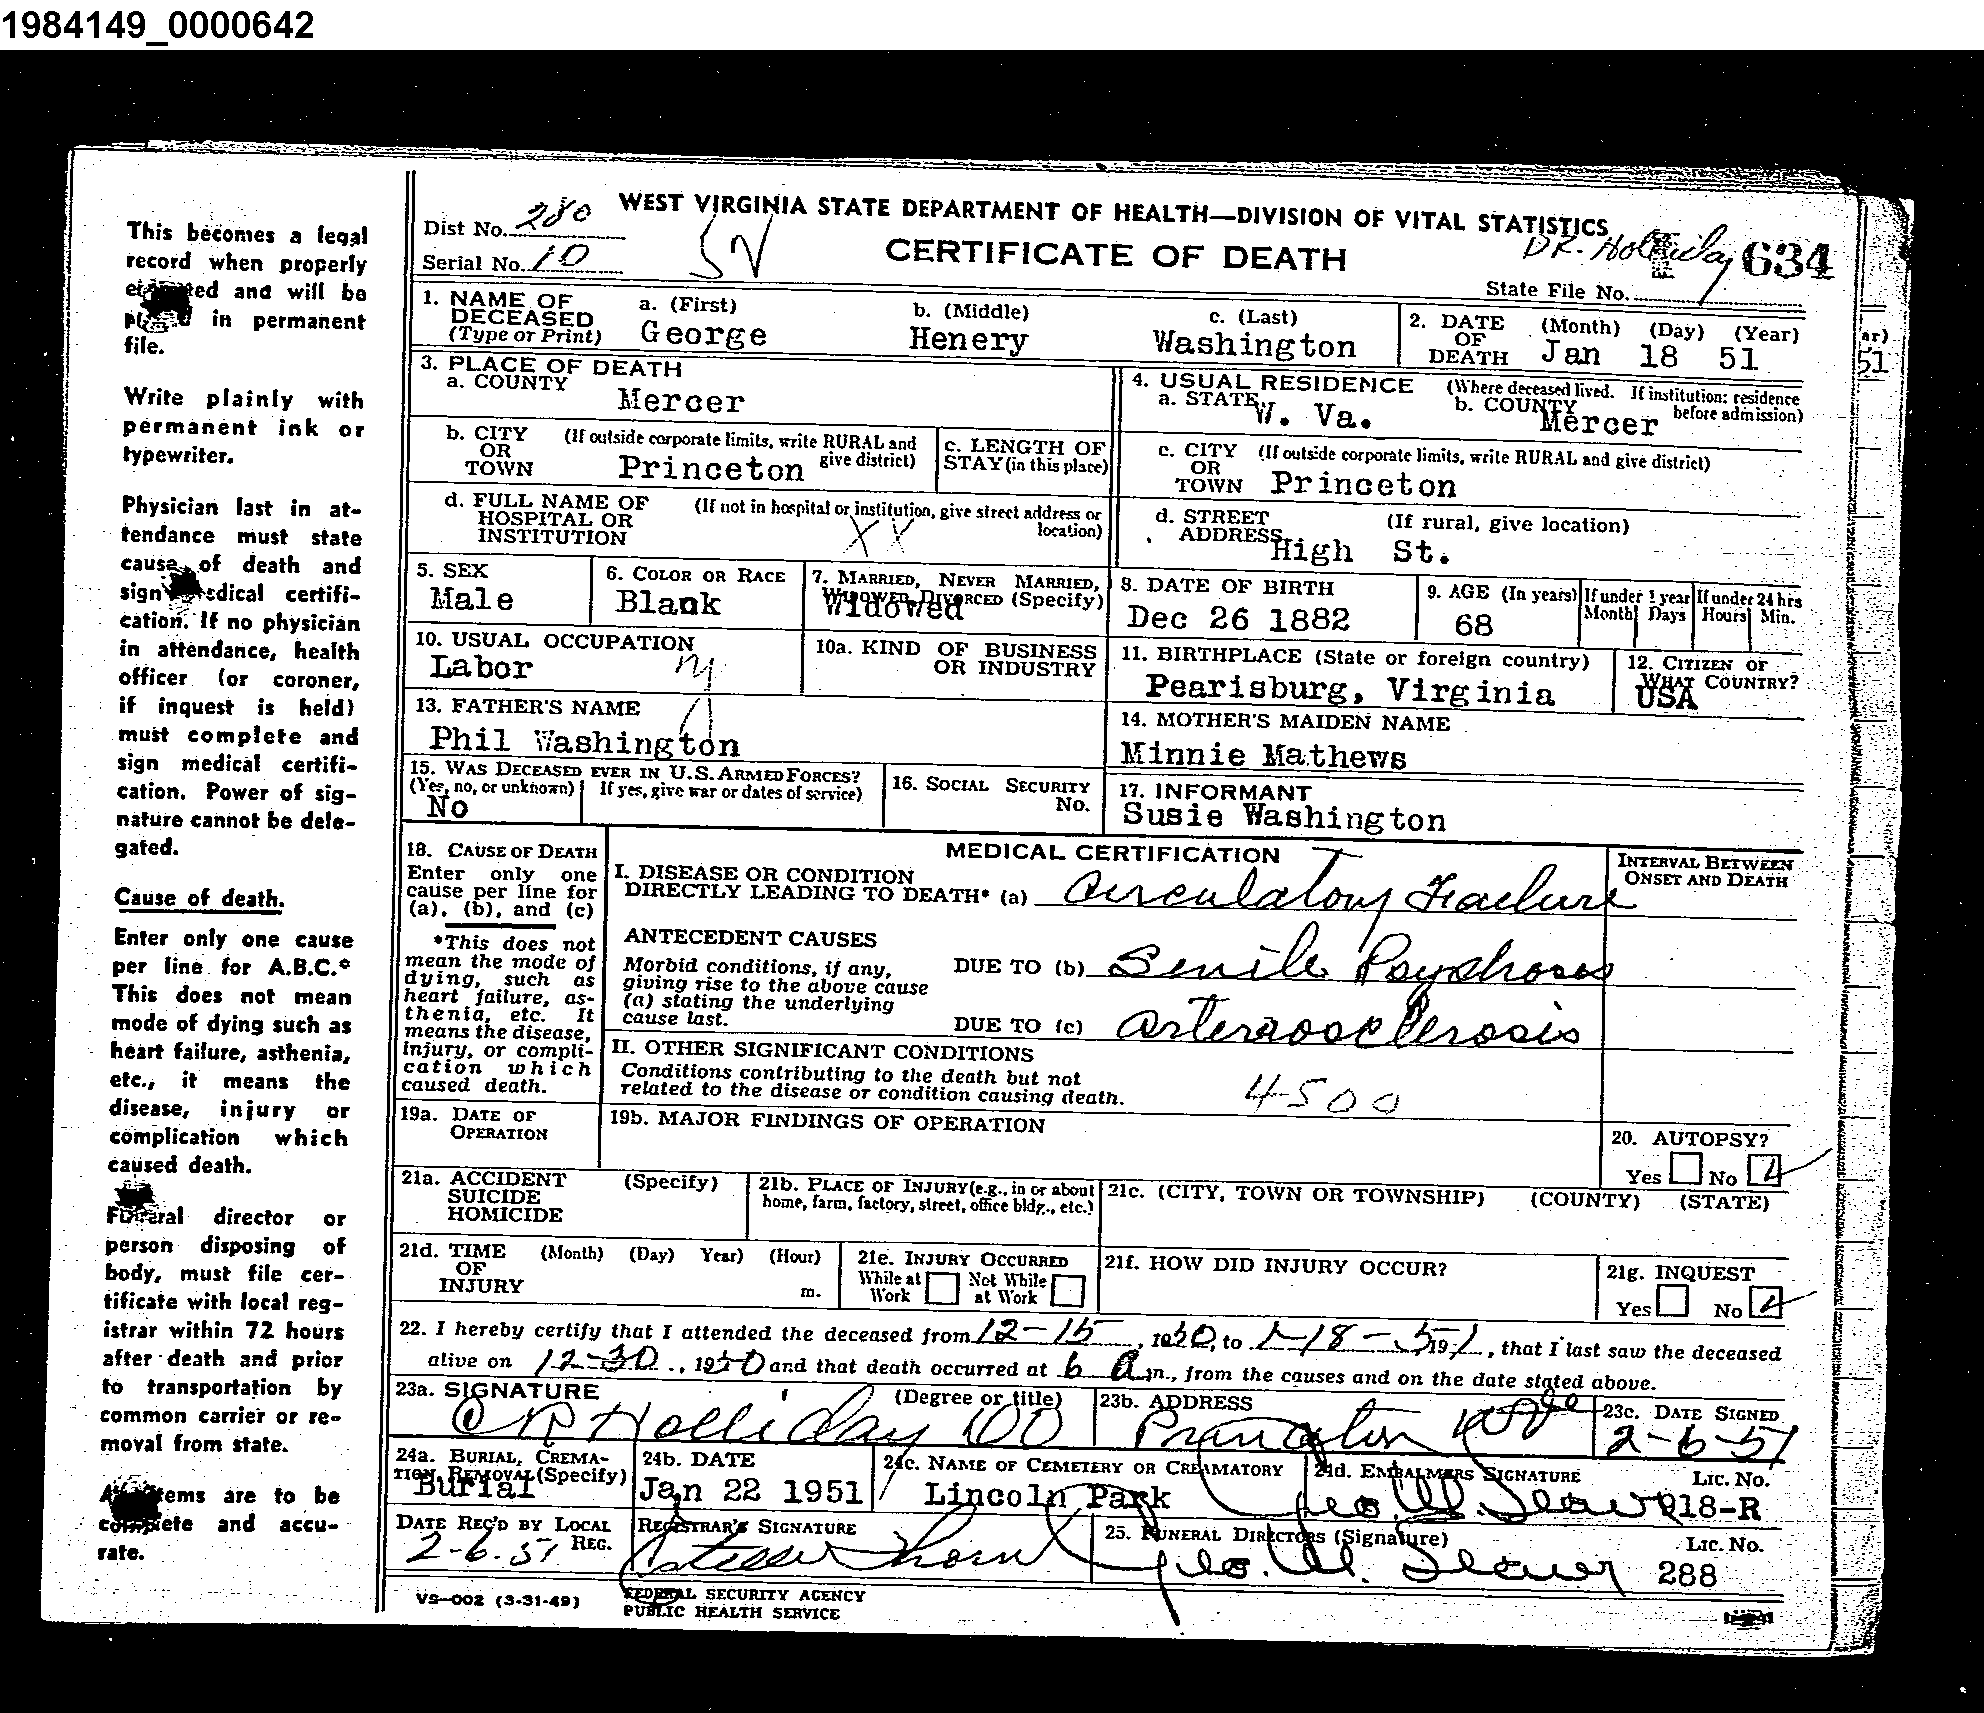 1984149_0000642
This becomes a legal
record when properly
and will be
in permanent
file.
Write plainly with
permanent ink or
typewriter.
Physician last in at-
tendance must state
cause of death and
sign medical certifi-
cation. If no physician
in attendance, health
officer (or coroner,
if inquest is held)
must complete and
sign medical certifi-
cation. Power of sig-
nature cannot be dele-
gated.
Cause of death.
Enter only one cause
per line for A.B.C.*
This does not mean
mode of dying such as
heart failure, asthenia,
etc., it means the
disease, injury or
complication which
caused death.
Funeral director or
person disposing of
body, must file cer-
tificate with local reg-
istrar within 72 hours
after death and prior
to transportation by
common carrier or re-
moval from state.
items are to be
complete and accu-
rate.
WEST VIRGINIA STATE DEPARTMENT OF HEALTH—DIVISION OF VITAL STATISTICS
CERTIFICATE OF DEATH
Dist No. 280
Serial No. 10
DR. Holliday 634
State File No.
1. NAME OF DECEASED (Type or Print)
a. (First) George
b. (Middle) Henery
c. (Last) Washington
2. DATE OF DEATH (Month) (Day) (Year)
Jan 18 51
3. PLACE OF DEATH
a. COUNTY Mercer
b. CITY OR TOWN (If outside corporate limits, write RURAL and give district)
Princeton
c. LENGTH OF STAY (in this place)
d. FULL NAME OF HOSPITAL OR INSTITUTION (If not in hospital or institution, give street address or location)
XX
4. USUAL RESIDENCE (Where deceased lived. If institution: residence before admission)
a. STATE W. Va.
b. COUNTY Mercer
c. CITY OR TOWN (If outside corporate limits, write RURAL and give district)
Princeton
d. STREET ADDRESS (If rural, give location)
High St.
5. SEX Male
6. COLOR OR RACE Blank
7. MARRIED, NEVER MARRIED, WIDOWED, DIVORCED (Specify)
Widowed
8. DATE OF BIRTH
Dec 26 1882
9. AGE (In years) 68
If under 1 year Month Days
If under 24 hrs Hours Min.
10. USUAL OCCUPATION
Labor
10a. KIND OF BUSINESS OR INDUSTRY
11. BIRTHPLACE (State or foreign country)
Pearisburg, Virginia
12. CITIZEN OF WHAT COUNTRY?
USA
13. FATHER'S NAME
Phil Washington
14. MOTHER'S MAIDEN NAME
Minnie Mathews
15. WAS DECEASED EVER IN U.S. ARMED FORCES?
(Yes, no, or unknown) If yes, give war or dates of service)
No
16. SOCIAL SECURITY No.
17. INFORMANT
Susie Washington
18. CAUSE OF DEATH
Enter only one
cause per line for
(a), (b), and (c)
*This does not
mean the mode of
dying, such as
heart failure, as-
thenia, etc. It
means the disease,
injury, or compli-
cation which
caused death.
MEDICAL CERTIFICATION
INTERVAL BETWEEN ONSET AND DEATH
I. DISEASE OR CONDITION
DIRECTLY LEADING TO DEATH* (a) Circulatory Failure
ANTECEDENT CAUSES
Morbid conditions, if any,
giving rise to the above cause
(a) stating the underlying
cause last.
DUE TO (b) Senile Psychosis
DUE TO (c) Arteriosclerosis
II. OTHER SIGNIFICANT CONDITIONS
Conditions contributing to the death but not
related to the disease or condition causing death.
4500
19a. DATE OF OPERATION
19b. MAJOR FINDINGS OF OPERATION
20. AUTOPSY?
Yes No
21a. ACCIDENT SUICIDE HOMICIDE (Specify)
21b. PLACE OF INJURY (e.g., in or about home, farm, factory, street, office bldg., etc.)
21c. (CITY, TOWN OR TOWNSHIP) (COUNTY) (STATE)
21d. TIME OF INJURY (Month) (Day) Year) (Hour) m.
21e. INJURY OCCURRED
While at Work Not While at Work
21f. HOW DID INJURY OCCUR?
21g. INQUEST
Yes No
22. I hereby certify that I attended the deceased from 12-15, 1950, to 1-18-51, that I last saw the deceased
alive on 12-30, 1950 and that death occurred at 6 a.m., from the causes and on the date stated above.
23a. SIGNATURE (Degree or title)
Holliday
23b. ADDRESS
Princeton
23c. DATE SIGNED
2-6-51
24a. BURIAL, CREMATION, REMOVAL (Specify)
Burial
24b. DATE
Jan 22 1951
24c. NAME OF CEMETERY OR CREAMATORY
Lincoln Park
24d. EMBALMERS SIGNATURE LIC. NO.
Geo. W. 218-R
DATE REC'D BY LOCAL REG.
2-6-51
REGISTRAR'S SIGNATURE
25. FUNERAL DIRECTORS (Signature) LIC. NO.
Geo. W. 288
VS—002 (3-31-49)
FEDERAL SECURITY AGENCY
PUBLIC HEALTH SERVICE
ar)
51